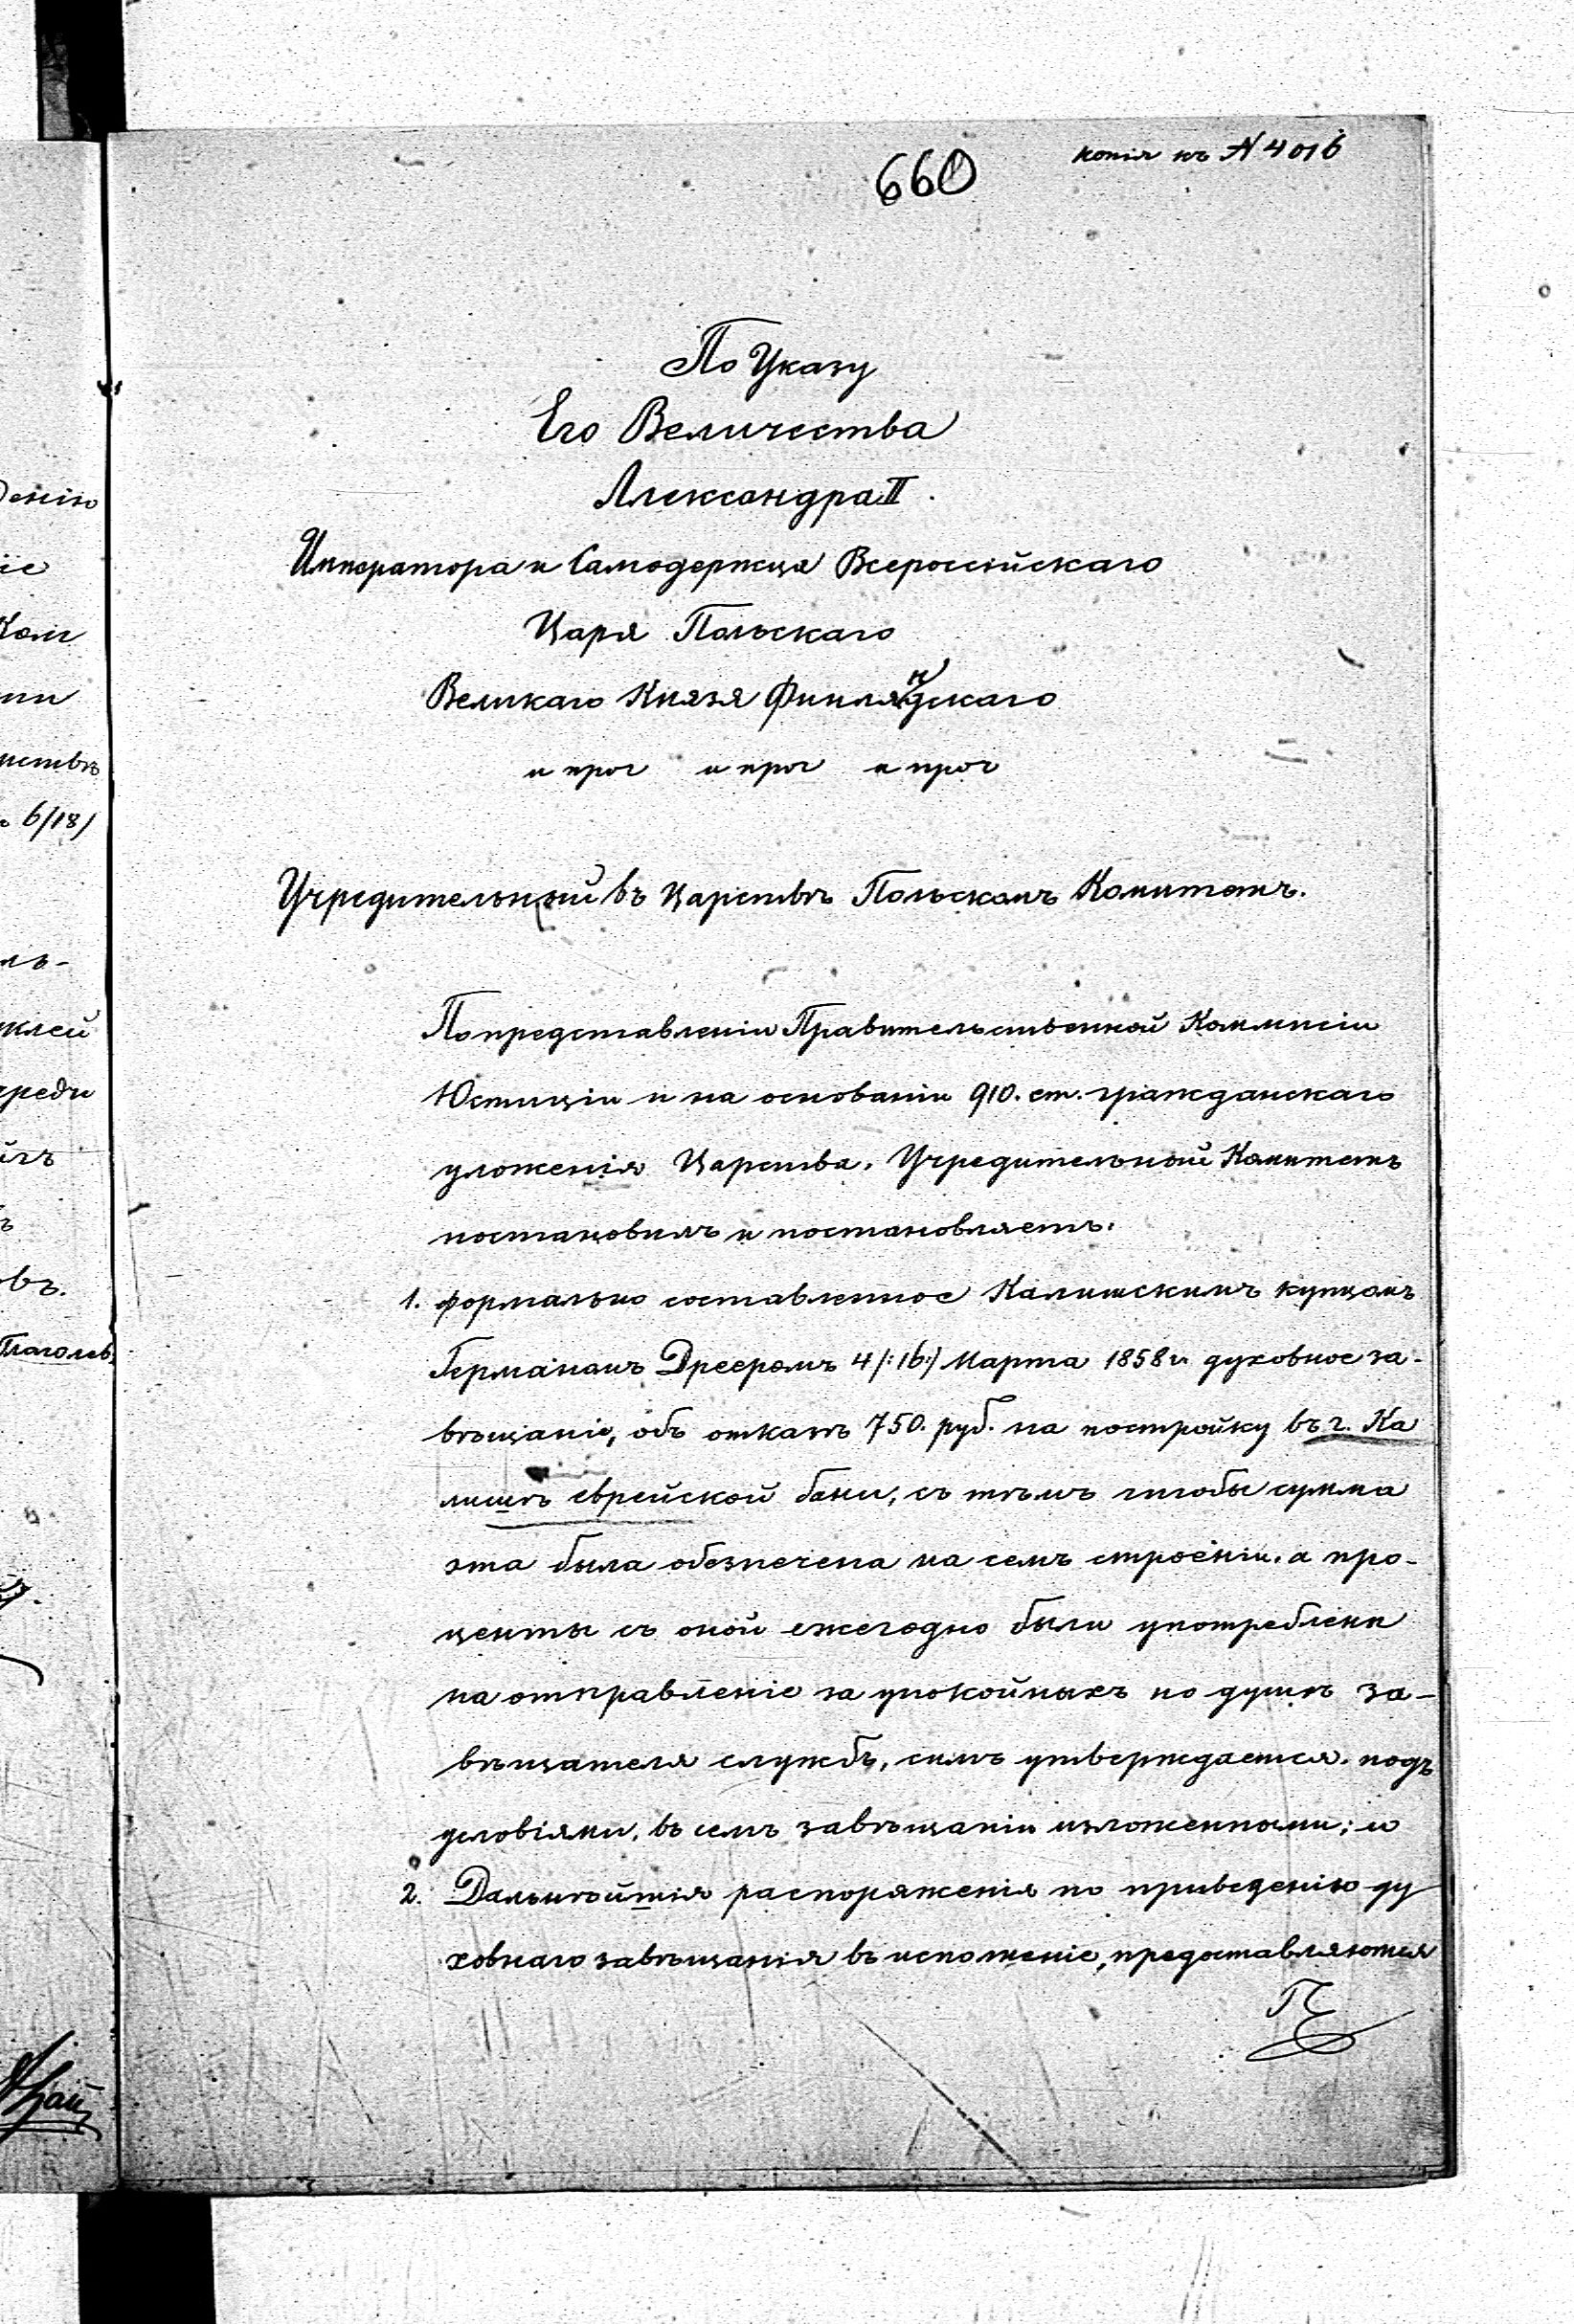 копія къ N 4016
660
По Указу
Его Величества
Александра II.
Императора и Самодержца Всероссійскаго
Царя Польскаго
Великаго Князя Финляндскаго
и проч и проч и проч
Учредительный въ Царствѣ Польскомъ Комитетъ.
По представленіи Правительственной Коммисіи
Юстиціи и на основаніи 910. ст. гражданскаго
уложенія Царства, Учредительный Комитетъ
постановилъ и постановляетъ.
1. формально составленное Калишскимъ купцомъ
Германомъ Дрееромъ 4/:16:/ Марта 1858 г. духовное за-
вѣщаніе, объ отказѣ 750. руб. на постройку въ г. Ка
лишѣ еврейской бани, съ тѣмъ чтобы сумма
эта была обезпечена на семъ строеніи, а про-
центы съ оной ежегодно были употреблены
на отправленіе за упокойныхъ по душѣ за-
вѣщателя службъ, симъ утверждается. подъ
условіями, въ семъ завѣщаніи изложенными; и
2. Дальнѣйшія распоряженія по приведенію ду
ховнаго завѣщанія въ исполненіе, предоставляются
деніе
іе
Ком
6/18/
ль-
реди
овъ.
Глаголевъ